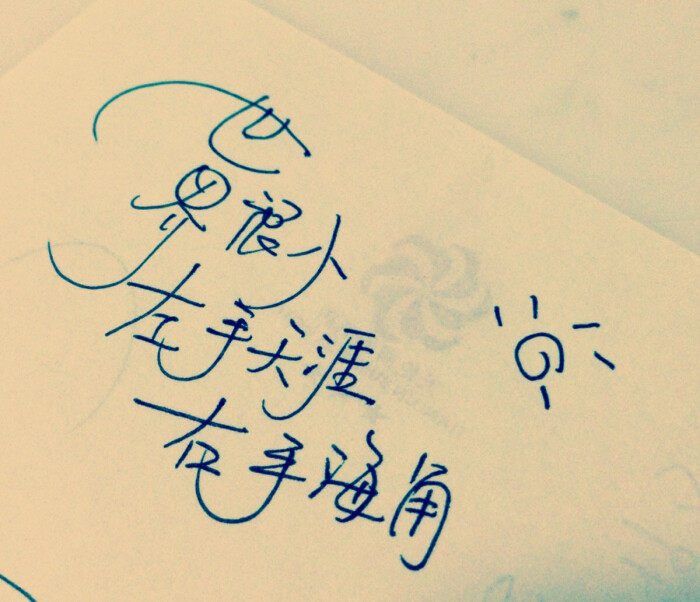 世
界很小
左手天涯
右手海角